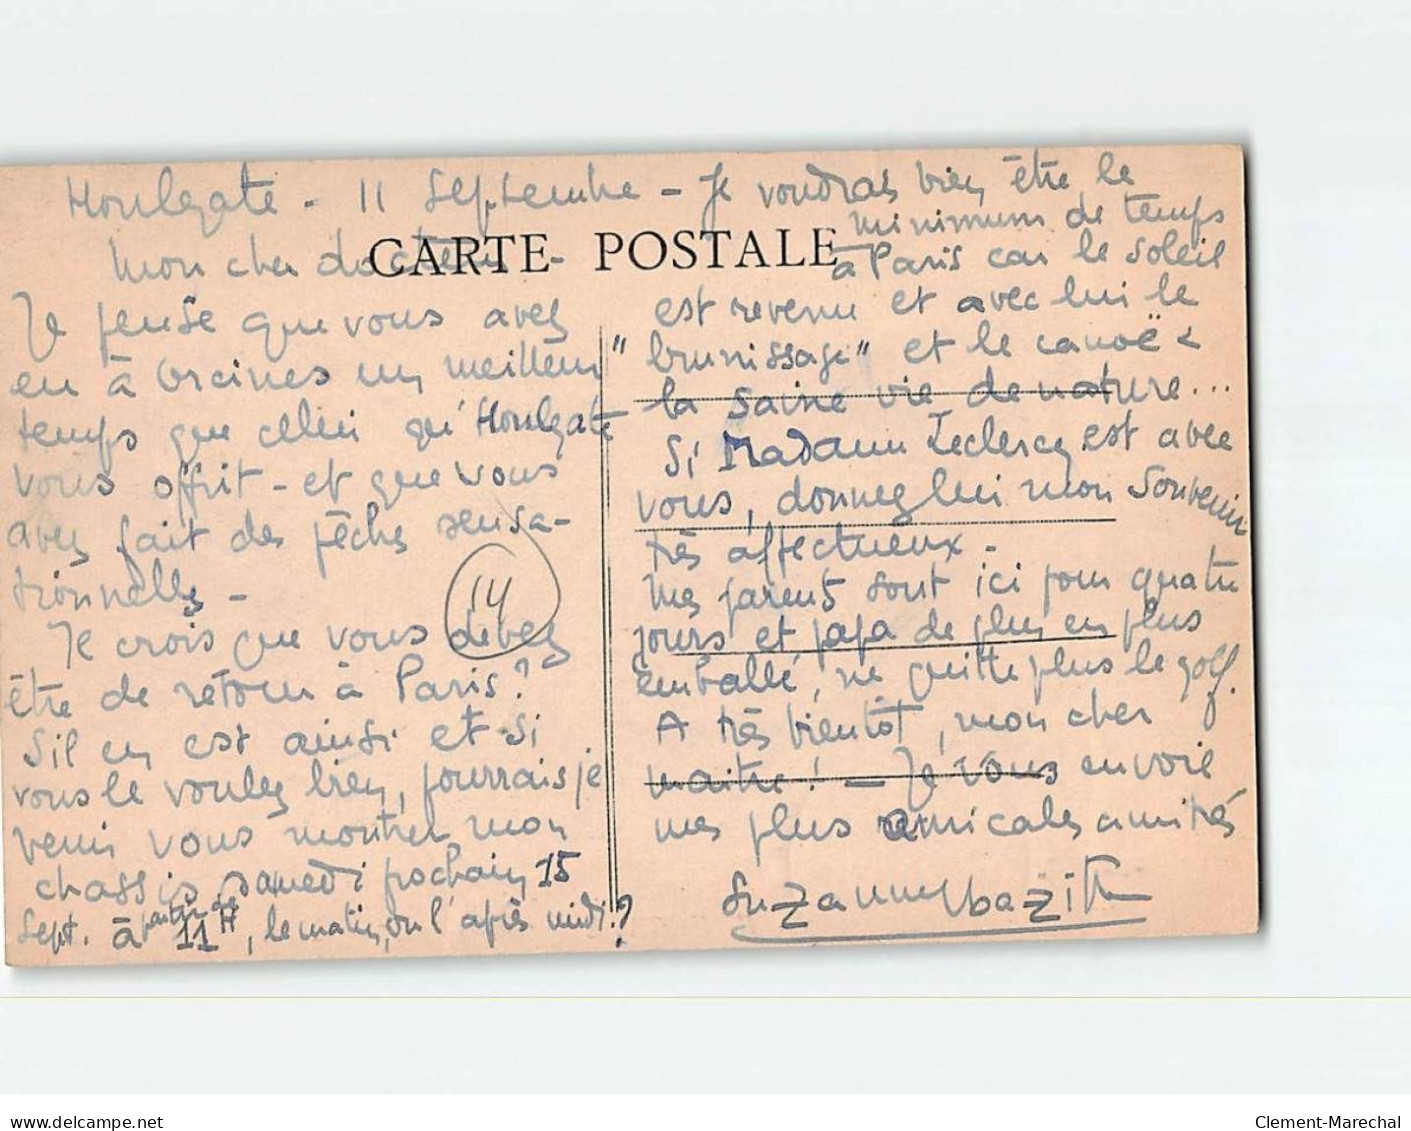 Houlgate - 11 Septembre -
Mon cher docteur -
CARTE POSTALE
Je pense que vous avez
eu à un meilleur
temps que celui qu'Houlgate
vous offrit - et que vous
avez fait des pêches sensa-
tionnelles -
Je crois que vous devez
14
être de retour à Paris ?
S'il en est ainsi et si
vous le voulez bien, pourrais je
venir vous montrer mon
chassis samedi prochain 15
Sept. à partir de 11H, le matin, ou l'après midi ?
Je voudrais bien être le
minimum de temps
à Paris car le soleil
est revenu et avec lui le
"brunissage" et le canoë &
la saine vie de nature...
Si Madame Leclercq est avec
vous, donnez lui mon souvenir
très affectueux -
Mes parents sont ici pour quatre
jours et papa de plus en plus
emballé, ne quitte plus le golf.
A très bientôt, mon cher
maitre ! - Je vous envoie
mes plus amicales amitiés
Suzanne
Clement-Marechal
delcampe.net